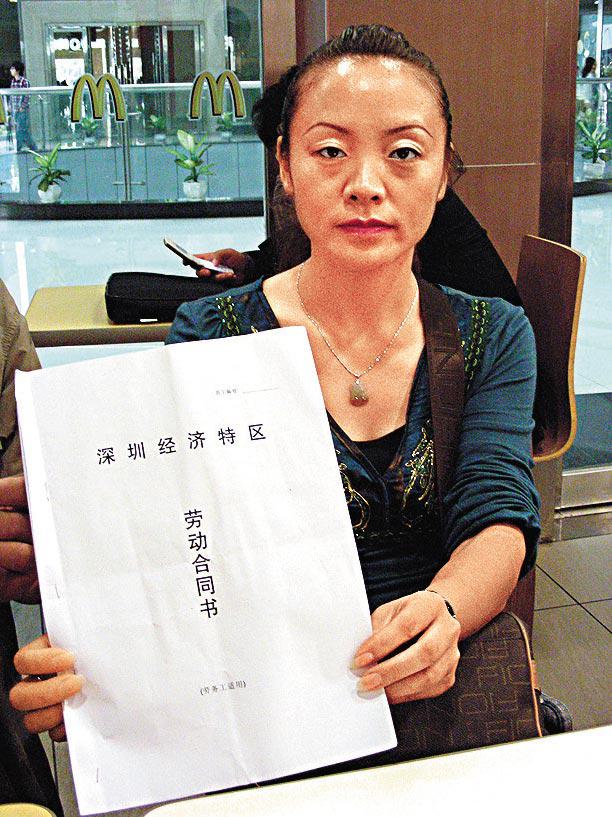 深圳经济特区
劳动合同书
(劳务工适用)